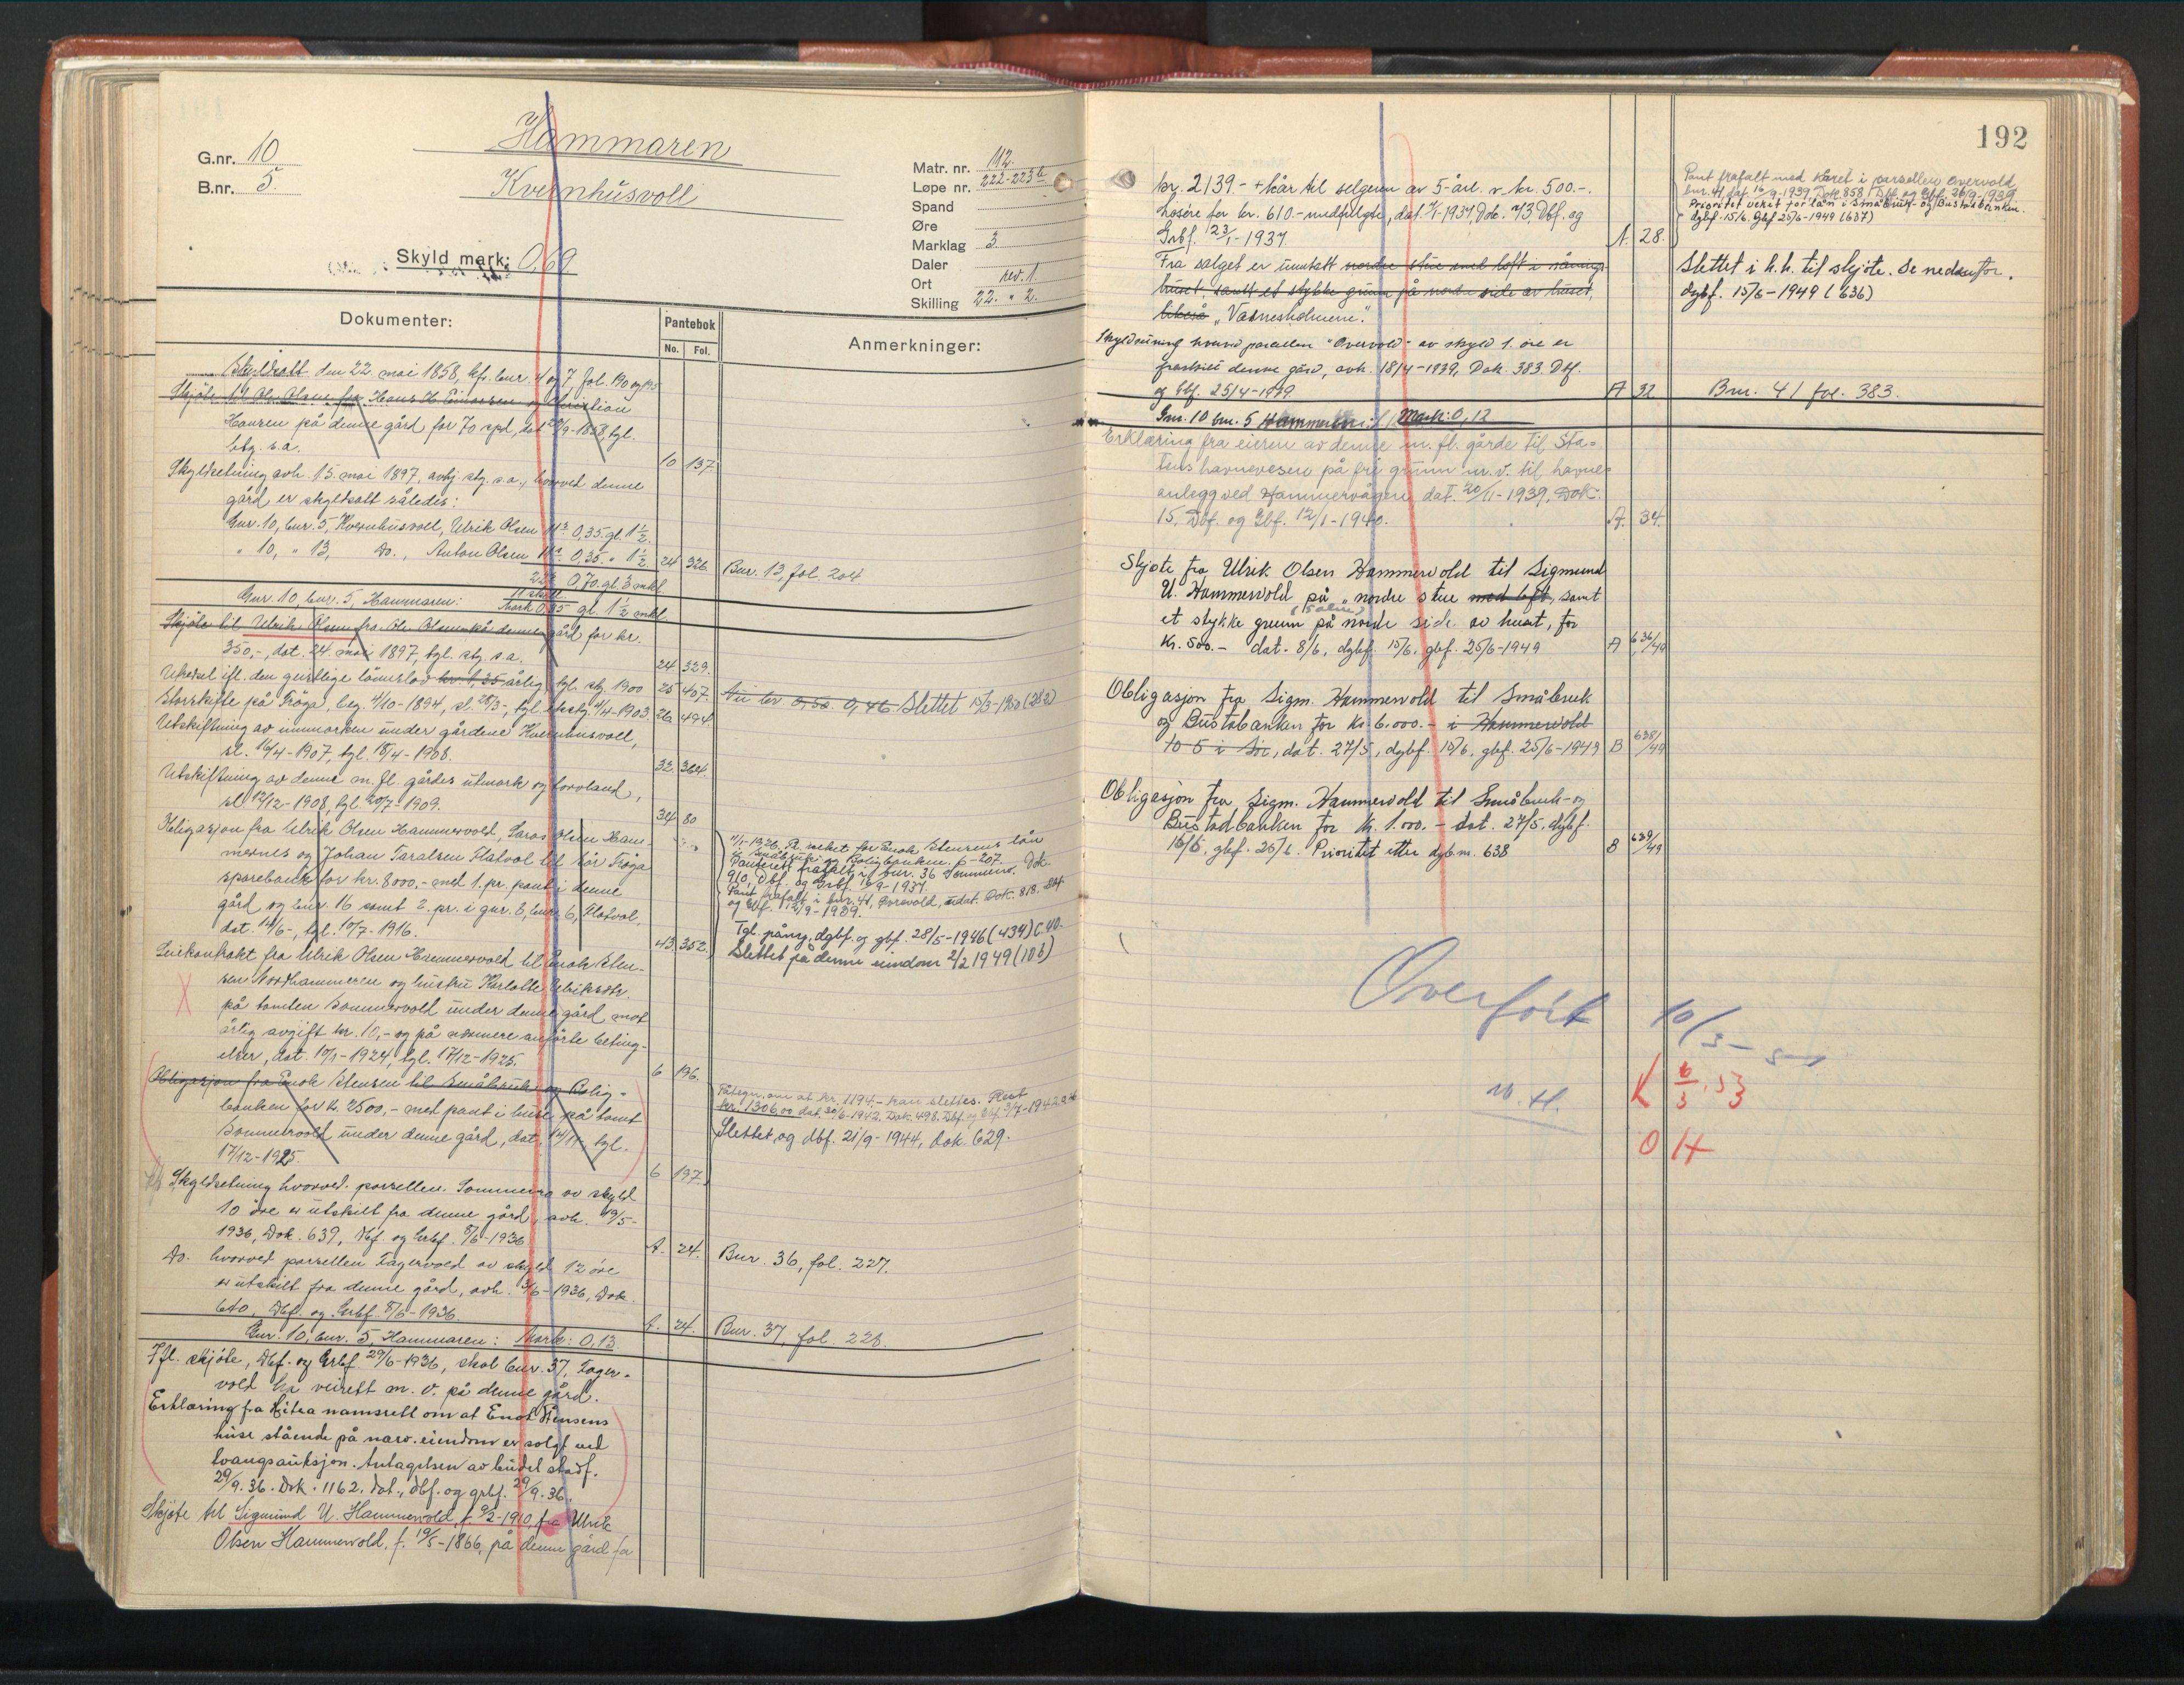 Hammaren
Kvernhusvoll
G.nr. 10
B.nr. 5.
Matr. nr. 112.
Løpe nr. 222-223b
Spand
Øre
Marklag 3
Daler
Ort rev. 1.
Skilling 22. " 2.
Skyld mark: 0,69
Dokumenter:
Pantebok
No. Fol.
Anmerkninger:
Skyldsatt den 22 mai 1858, kfr. bnr. 4 og 7, fol. 190 og 195
Skjøte til Ole Olsen fra Hans H. Einarsen og Christian
Hansen på denne gård for 70 spd, dat 22/9-1858, tgl.
htg. s.a. 10 137.
Skyldsetning avh. 15. mai 1897, avhj. stg. s.a., hvorved denne
gård er skyldsatt således:
Gnr. 10, bnr. 5, Kvernhusvoll, Ulrik Olsen 0,35. gl. 1 1/2.
" 10, " 13, Do., Anton Olsen 0,35. " 1 1/2. 24 326 Bnr. 13, fol. 204
0,70. gl. 3 mkl.
Gnr. 10, bnr. 5, Hammaren: Mark 0,35 gl. 1 1/2 mkl.
Skjøte til Ulrik Olsen fra Ole Olsen på denne gård for kr.
350,-, dat. 24. mai 1897, tgl. stg. s.a. 24 329.
Utferdsel ifl. den geistlige lønnslov kr. 1,35 årlig, tgl. stg. 1900 25 407. Nu kr. 0,50. 0,46 Slettet 15/3-1950 (282)
Storskifte på Frøya, beg. 4/10-1894, sl. 28/3-, tgl. 4/4-1903 26 494
Utskiftning av innmarken under gårdene Kvernhusvoll,
sl. 16/4-1907, tgl. 15/4-1908. 32 364.
Utskiftning av denne m. fl. gårdes utmark og torvland,
sl 12/12-1908, tgl. 20/7-1909. 34 80
Obligasjon fra Ulrik Olsen Hammervold, Laras Olsen Ham-
mernes og Johan Taralsen Flatvol til Sør Frøya
sparebank for kr. 8000.- med 1. pr. pant i denne
gård og bnr. 16 samt 2. pr. i gnr. 8, bnr. 6, Flatvol,
dat. 14/6-, tgl. 10/7-1916. 43. 352.
11/1-1926. Pr. veket for Enok Stensens lån
i Småbruk og Boligbanken. 6-207.
Panterett frafalt i bnr. 36 Sommerro. Dok.
910, Dbf. og Grbf. 16/9-1937.
Pant frafalt i bnr. 41, Overvold, udat. Dok. 818. Dbf.
og Gbf. 12/9-1939.
Tgl. påny, dgbf. og gbf. 28/5-1946 (439) C. 40.
Slettet på denne eiendom 2/2 1949 (106)
Leiekontrakt fra Ulrik Olsen Hammervold til Enok Sten-
sen Nordhammeren og hustru Karlotte Ulriksdtr.
X på tomten Sommervold under denne gård mot
årlig avgift kr. 10,- og på nærmere anførte beting-
elser, dat. 10/1-1924, tgl. 17/12-1925. 6 196.
Obligasjon fra Enok Stensen til Småbruk og Bolig-
banken for kr. 2500,- med pant i huse på tomt
Sommervold under denne gård, dat. 14/11, tgl.
17/12-1925. 6 197.
Påtegn. om at kr. 1194,- kan slettes. Rest
kr. 1306,00 dat. 30/6-1942. Dok. 498. Dbf. og Gbf. 3/7-1942
Slettet og dbf. 21/9-1944, dok. 629.
Skyldsetning hvorved parsellen Sommerro av skyld
10 øre er utskilt fra denne gård, avh. 19/5-
1936, Dok. 639, Dbf. og Grbf. 8/6-1936 A. 24. Bnr. 36, fol. 227.
Do. hvorved parsellen Fagervold av skyld 12 øre
er utskilt fra denne gård, avh. 3/6-1936, Dok.
640, Dbf. og Grbf. 8/6-1936 A. 24. Bnr. 37, fol. 228.
Gnr. 10, bnr. 5, Hammaren: Mark: 0,13
Ifl. skjøte, Dbf. og Grbf. 29/6-1936, skal bnr. 37, Fager-
vold ha veirett m. v. på denne gård.
Erklæring fra Hitra namsrett om at Enok Stensens
huse stående på nærv. eiendom er solgt ved
tvangsauksjon. Antagelsen av budet stadf.
29/9.36. Dok. 1162. dat., dbf. og grbf. 29/9.36.
Skjøte til Sigmund U. Hammervold, f. 9/2-1910, fra Ulrik
Olsen Hammervold, f. 19/5-1866, på denne gård for
192
kr. 2139.- + kår til selgeren av 5-årl. v. kr. 500.-.
Løsøre for kr. 610.- medfulgte, dat. 4/1-1937, Dok. 73, Dbf. og
Grbf. 23/1-1937 A. 28.
Pant frafalt med kåret i parsellen Overvold
bnr. 41 dat. 16/9-1939, Dok. 858, Dbf. og Gbf. 26/9-1939.
Prioritet veket for lån i Småbruk- og Bustadbanken.
dgbf. 15/6. Gbf 25/6-1949 (637)
Slettet i h.h. til skjøte. Se nedenfor.
dgbf. 15/6-1949 (636)
Fra salget er unntatt nordre stue med loft i vånings-
huset, samt et stykke grunn på nordre side av huset,
likeså "Værnesholmene".
Skyldsetning hvorved parsellen "Overvold" av skyld 1. øre er
fraskilt denne gård, avh. 18/4-1939, Dok. 383. Dbf.
og Gbf. 25/4-1939. A 32 Bnr. 41 fol. 383.
Gnr. 10 bnr. 5 Hammeren: Mark: 0,12
Erklæring fra eieren av denne m. fl. gårde til Sta=
tens havnevesen på fri grunn m.v. til havne=
anlegg ved Hammervågen dat. 20/11-1939, Dok.
15, Dbf. og Gbf. 12/1-1940. A. 34.
Skjøte fra Ulrik Olsen Hammervold til Sigmund
U. Hammervold på "nordre stue med loft, samt
et stykke grunn på nordre side av huset, for
Kr. 500.- dat. 8/6, dgbf. 15/6, gbf. 25/6-1949 A 636/49
Obligasjon fra Sigm. Hammervold til Småbruk
og Bustabanken for kr. 6.000.- i Hammervold
10-5 i Sør, dat. 27/5, dgbf. 15/6, gbf. 25/6-1949 B 638/49
Obligasjon fra Sigm. Hammervold til Småbruk- og
Bustadbanken for kr. 1.000.- dat. 27/5, dgbf.
15/6, gbf. 25/6. Prioritet etter dgb nr. 638 B 639/49
Overført 10/3-5
K 6/3.53
O H